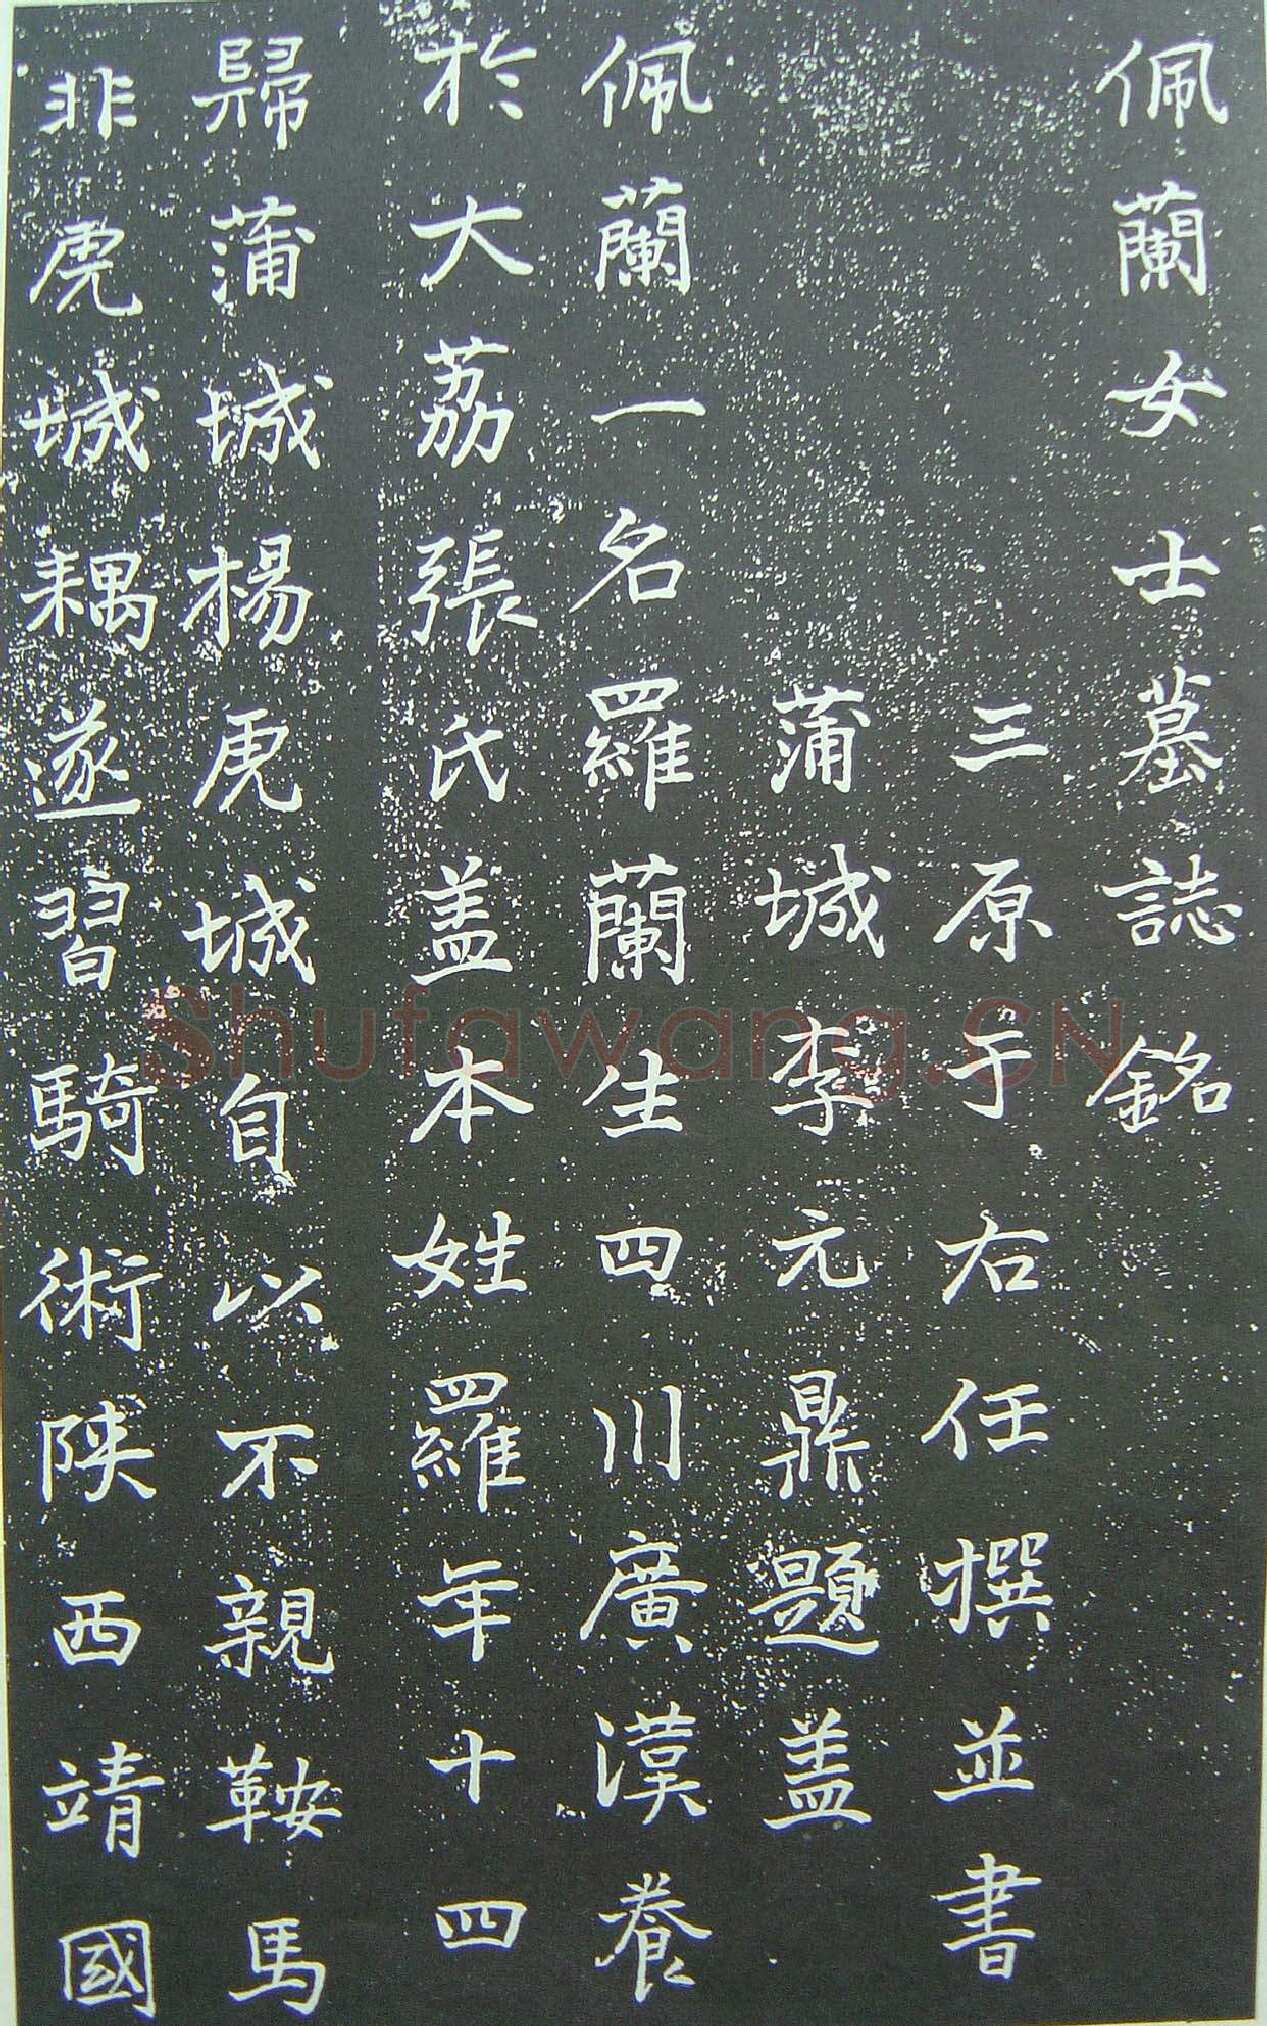 佩蘭女士墓誌銘
三原于右任撰並書
蒲城李元鼎題盖
佩蘭一名羅蘭生四川廣漢養
於大荔張氏盖本姓羅年十四
歸蒲城楊虎城自以不親鞍馬
非虎城耦遂習騎術陝西靖國
Shufawang.CN